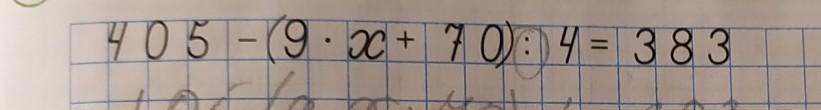 405 - (9 · x + 70) : 4 = 383